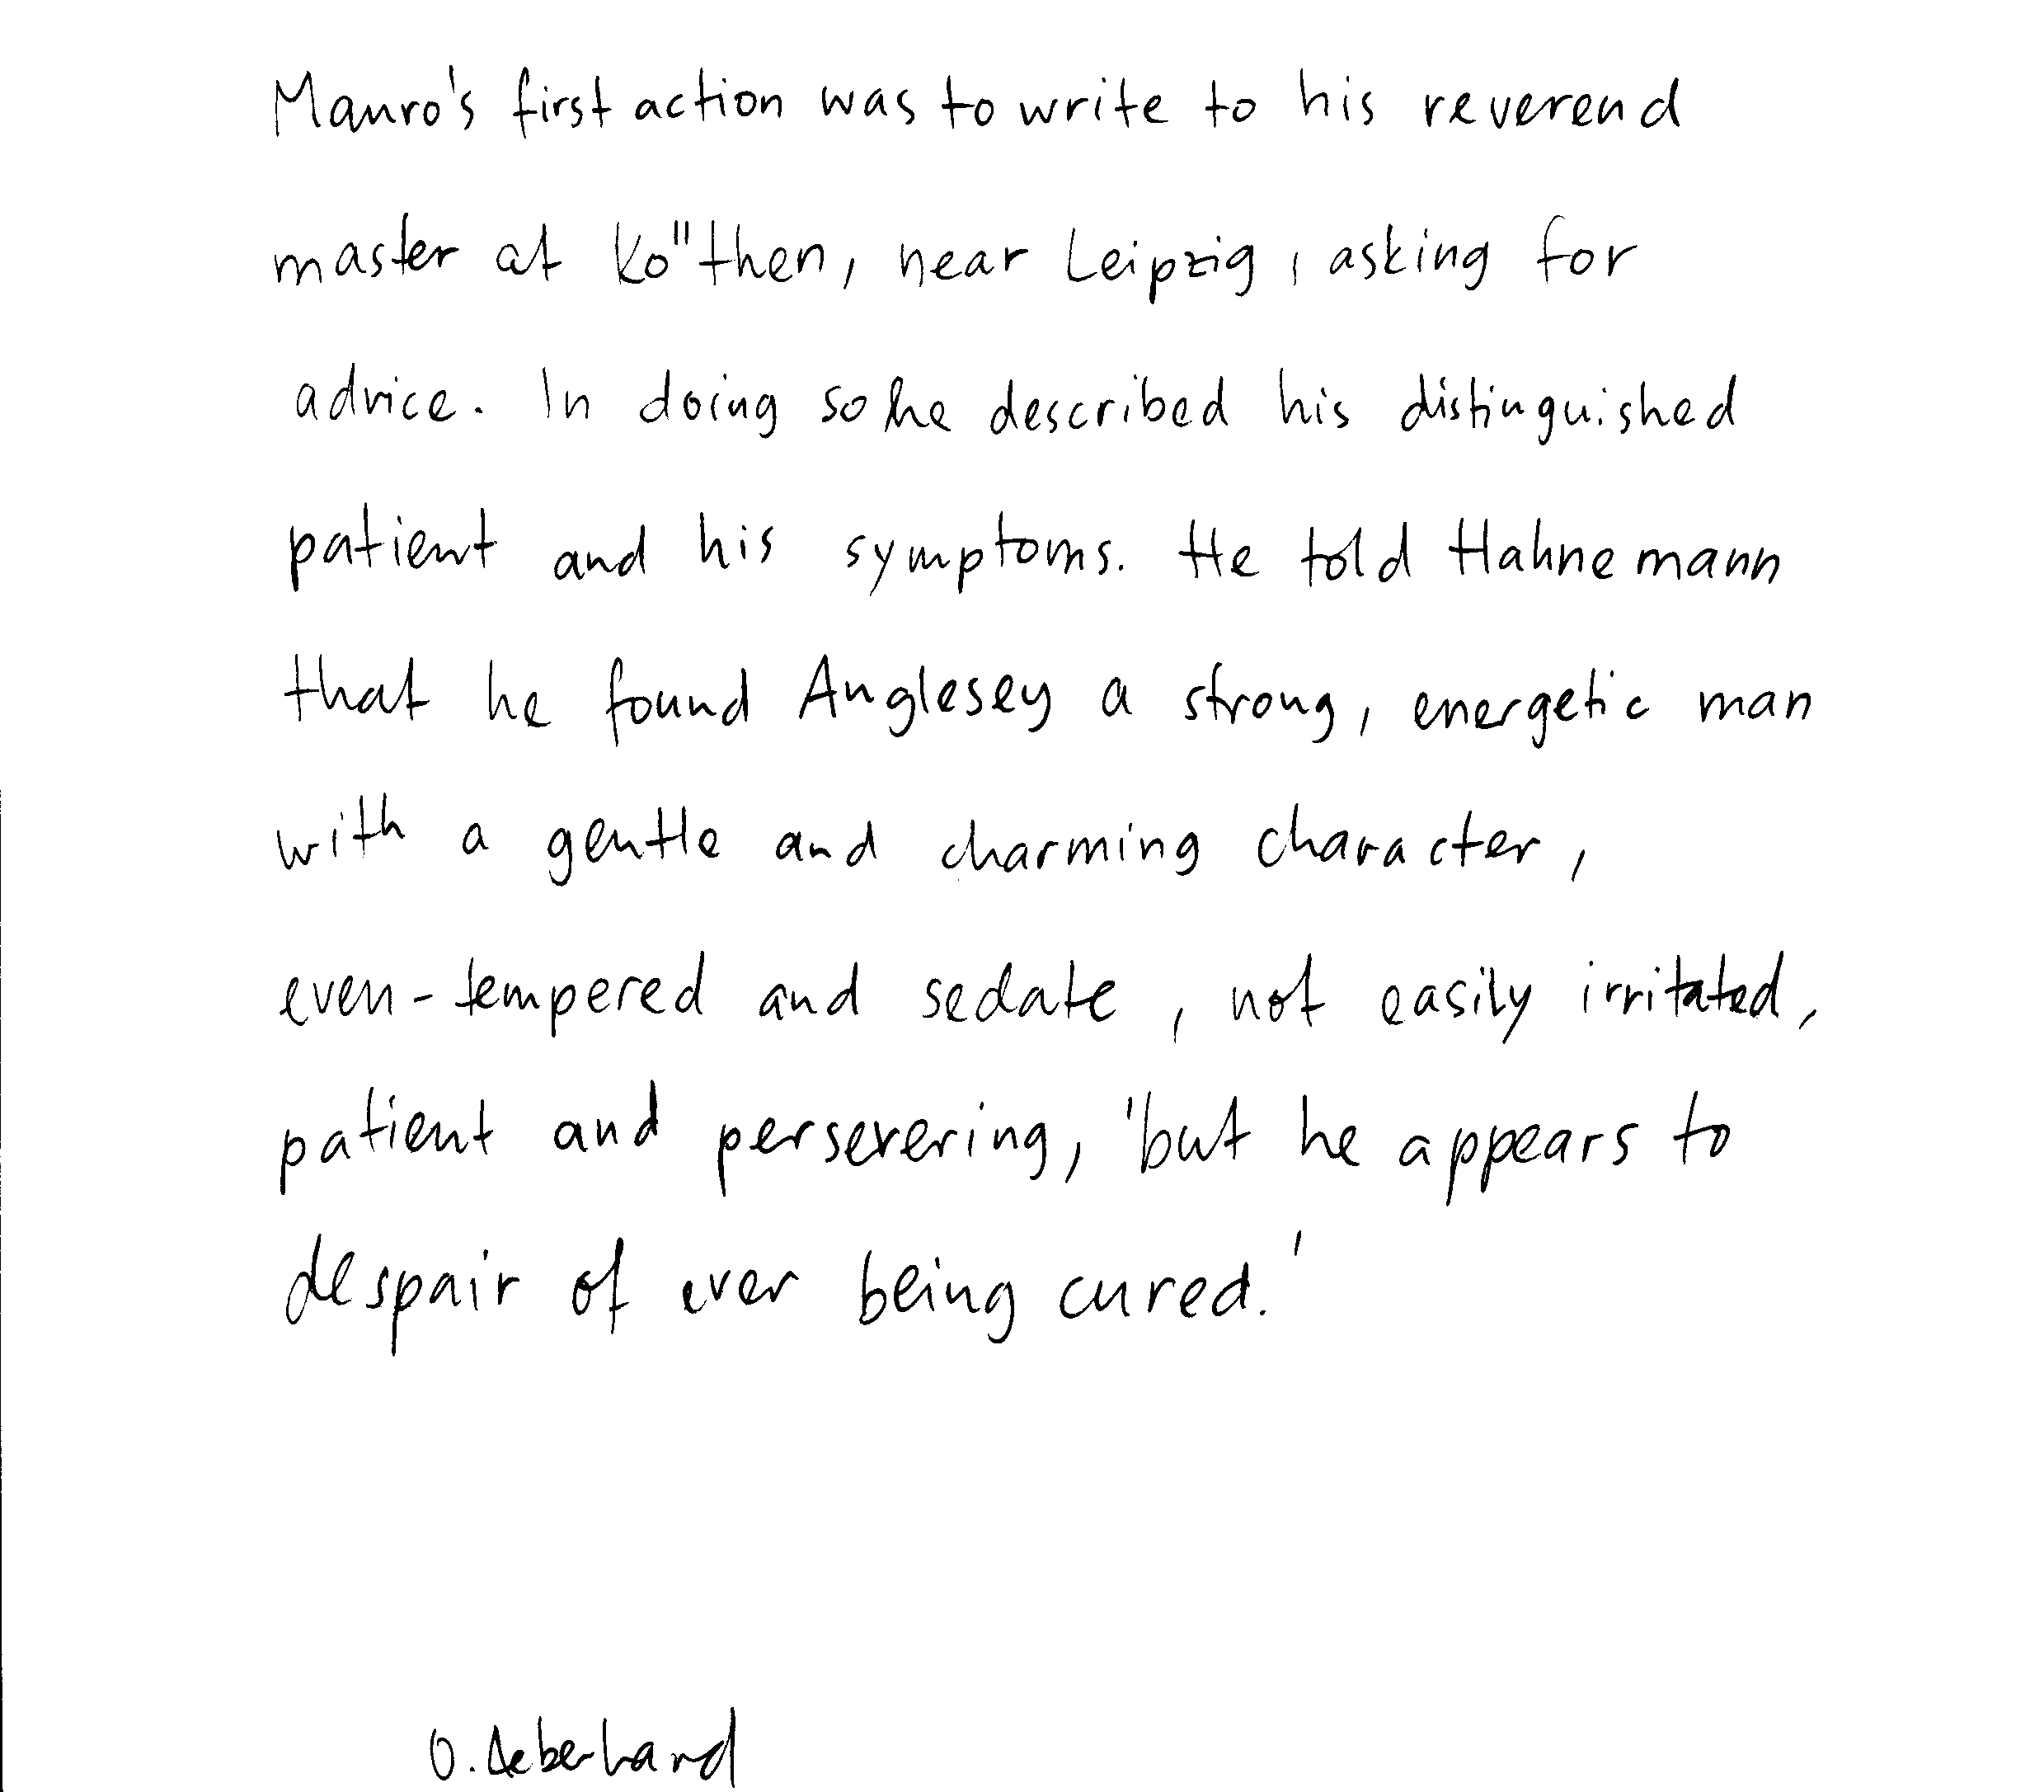 Mauro's first action was to write to his reverend
master at Ko"then, near Leipzig, asking for
advice. In doing so he described his distinguished
patient and his symptoms. He told Hahnemann
that he found Anglesey a strong, energetic man
with a gentle and charming character,
even-tempered and sedate, not easily irritated,
patient and persevering, 'but he appears to
despair of ever being cured.'
O. Aeberhard